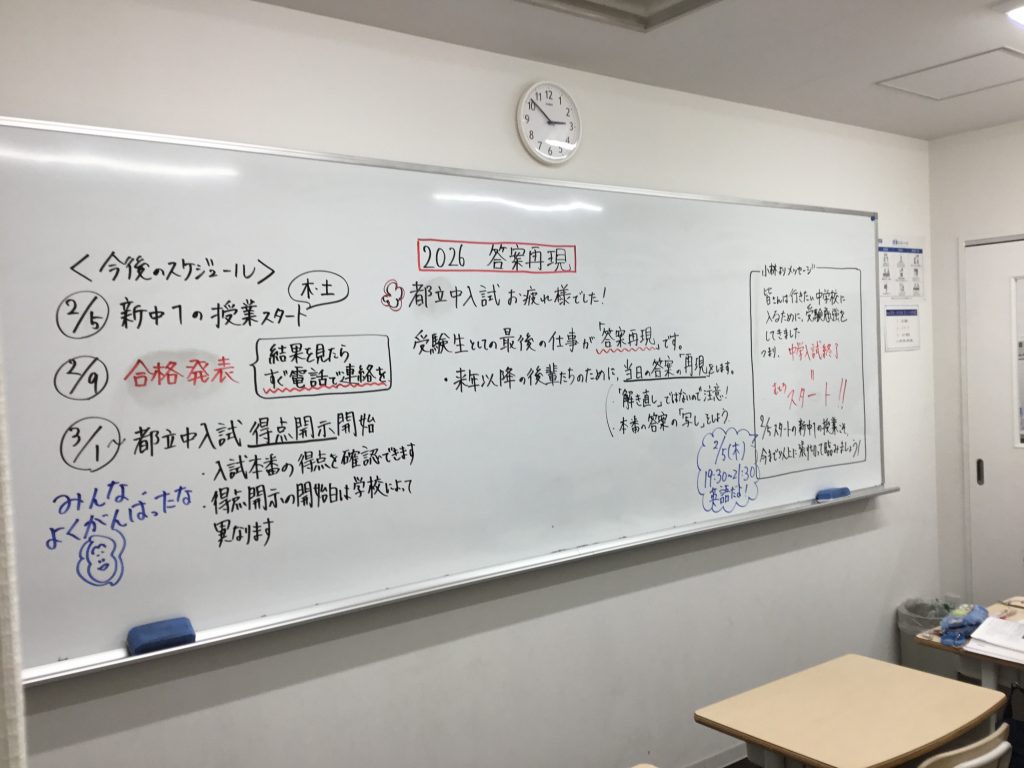 2026 答案再現
<今後のスケジュール>
2/5 新中1の授業スタート
木・土
2/9 合格発表
結果を見たら
すぐ電話で連絡を
3/1~ 都立中入試 得点開示開始
・入試本番の得点を確認できます
・得点開示の開始日は学校によって
異なります
みんな、
よくがんばったな
都立中入試お疲れ様でした!
受験生としての最後の仕事が「答案再現」です。
・来年以降の後輩たちのために、当日の答案の「再現」をします。
・"解き直し"ではないので注意!
・本番の答案の「写し」をしよう
2/5(木)
19:30~21:30
英語だよ!
小林よりメッセージ
皆さんは行きたい中学校に
入るために、受験勉強を
してきました
つまり、中学入試終了
=
むしろ
スタート!!
2/5スタートの新中1の授業、
今まで以上に
臨みましょう!
12
11
1
10
2
9
3
8
4
7
5
6